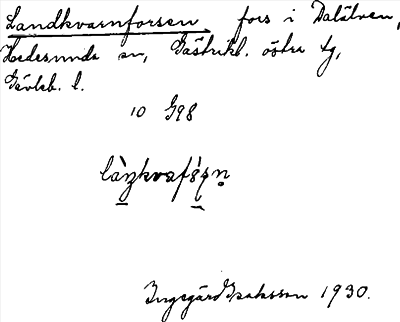 Landkvarnforsen fors i Dalälven,
Hedesunda sn, Gästrikl. östra tg,
Gävleb. l.
10 G98
Ingegärd Isaksson 1930.